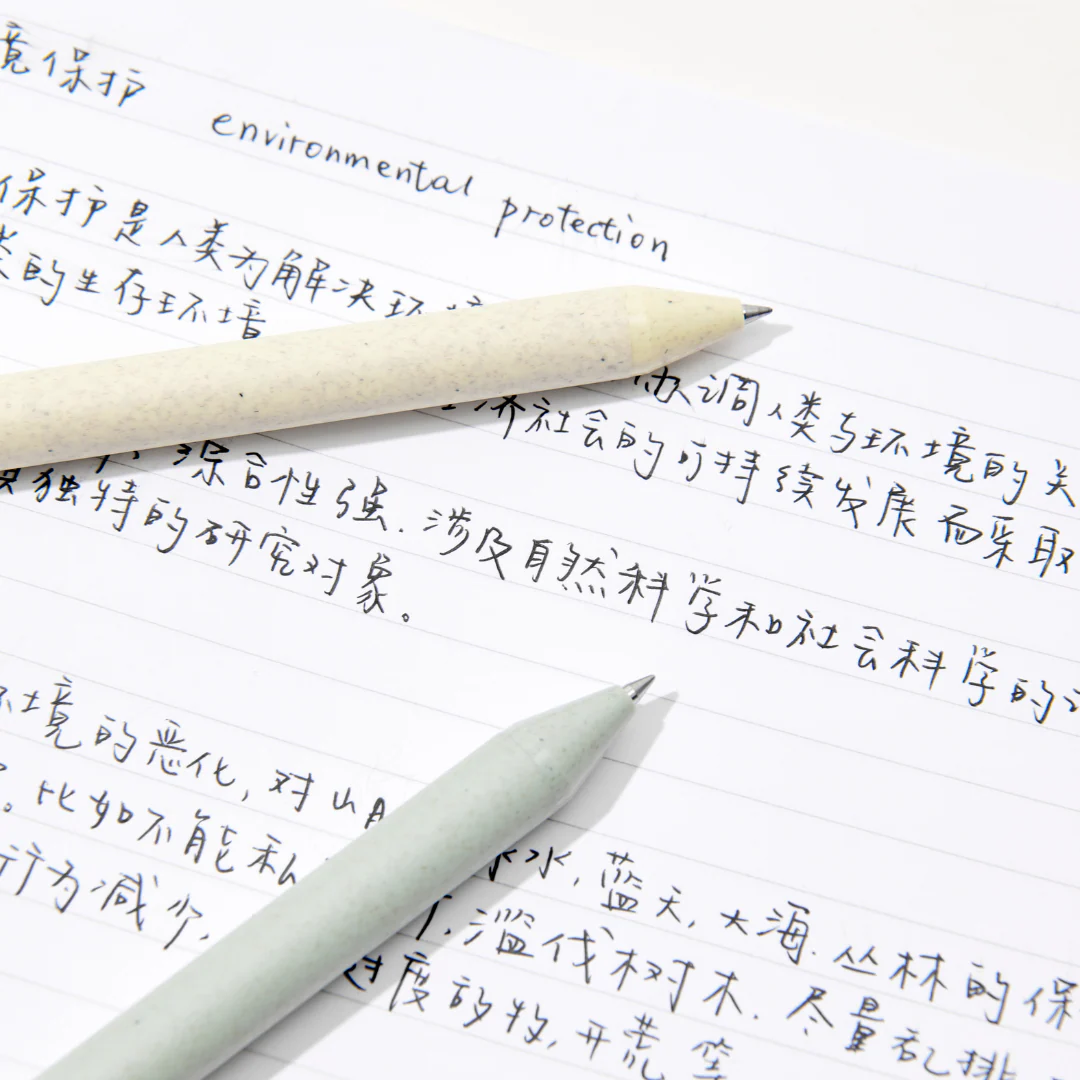 境保护 environmental protection
保护是人类为解决环境 协调人类与环境的关
类的生存环境 经济社会的可持续发展而采取
综合性强.涉及自然科学和社会科学的
独特的研究对象。
环境的恶化,对山 水,蓝天,大海.丛林的保
。比如不能私 滥伐树木.尽量乱排
行为减少, 过度放牧,开荒等